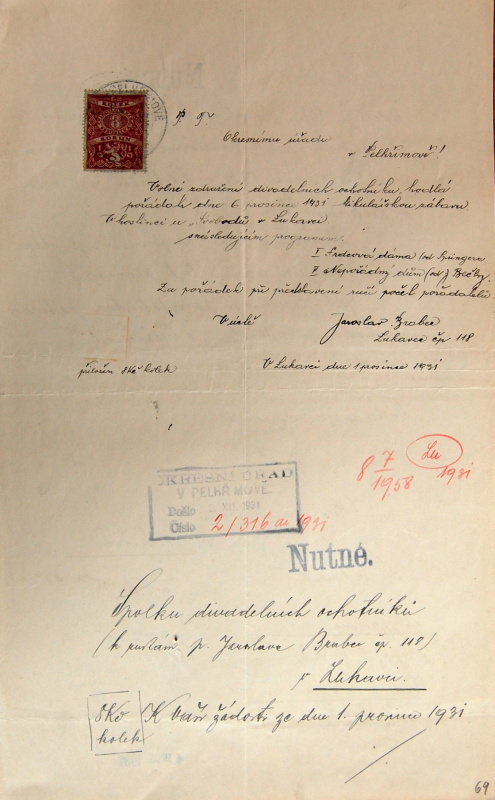 P. T.
Okresnímu úřadu
v Pelhřimově!
Volné združení divadelních ochotníku, hodlá
pořádati dne 6 prosince 1931 Mikulášskou zábavu
V hostinci u Svobodů v Lukavci
s následujícím programem.
I Srdcová dáma (od Špringera
II Nepořádný dům (od J Bečky)
Za pořádek při představení ručí počet pořadatelů
V úctě
Jaroslav Brabec
Lukavec čp 118
přiložen 8kč kolek
V Lukavci dne 1 prosince 1931
8 7/1958 Lu 1931
OKRESNÍ ÚŘAD
V PELHŘIMOVĚ.
Došlo 1931
Číslo 2/316 ai 1931
Nutné.
Spolku divadelních ochotníků
(k rukám p. Jaroslava Brabce čp. 118)
v Lukavci.
8Kč
kolek
K Vaší žádosti ze dne 1. prosince 1931
69